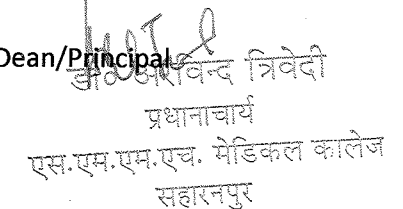 Dean/Principal
डा० अरविन्द त्रिवेदी
प्रधानाचार्य
एस.एम.एम.एच. मेडिकल कालेज
सहारनपुर